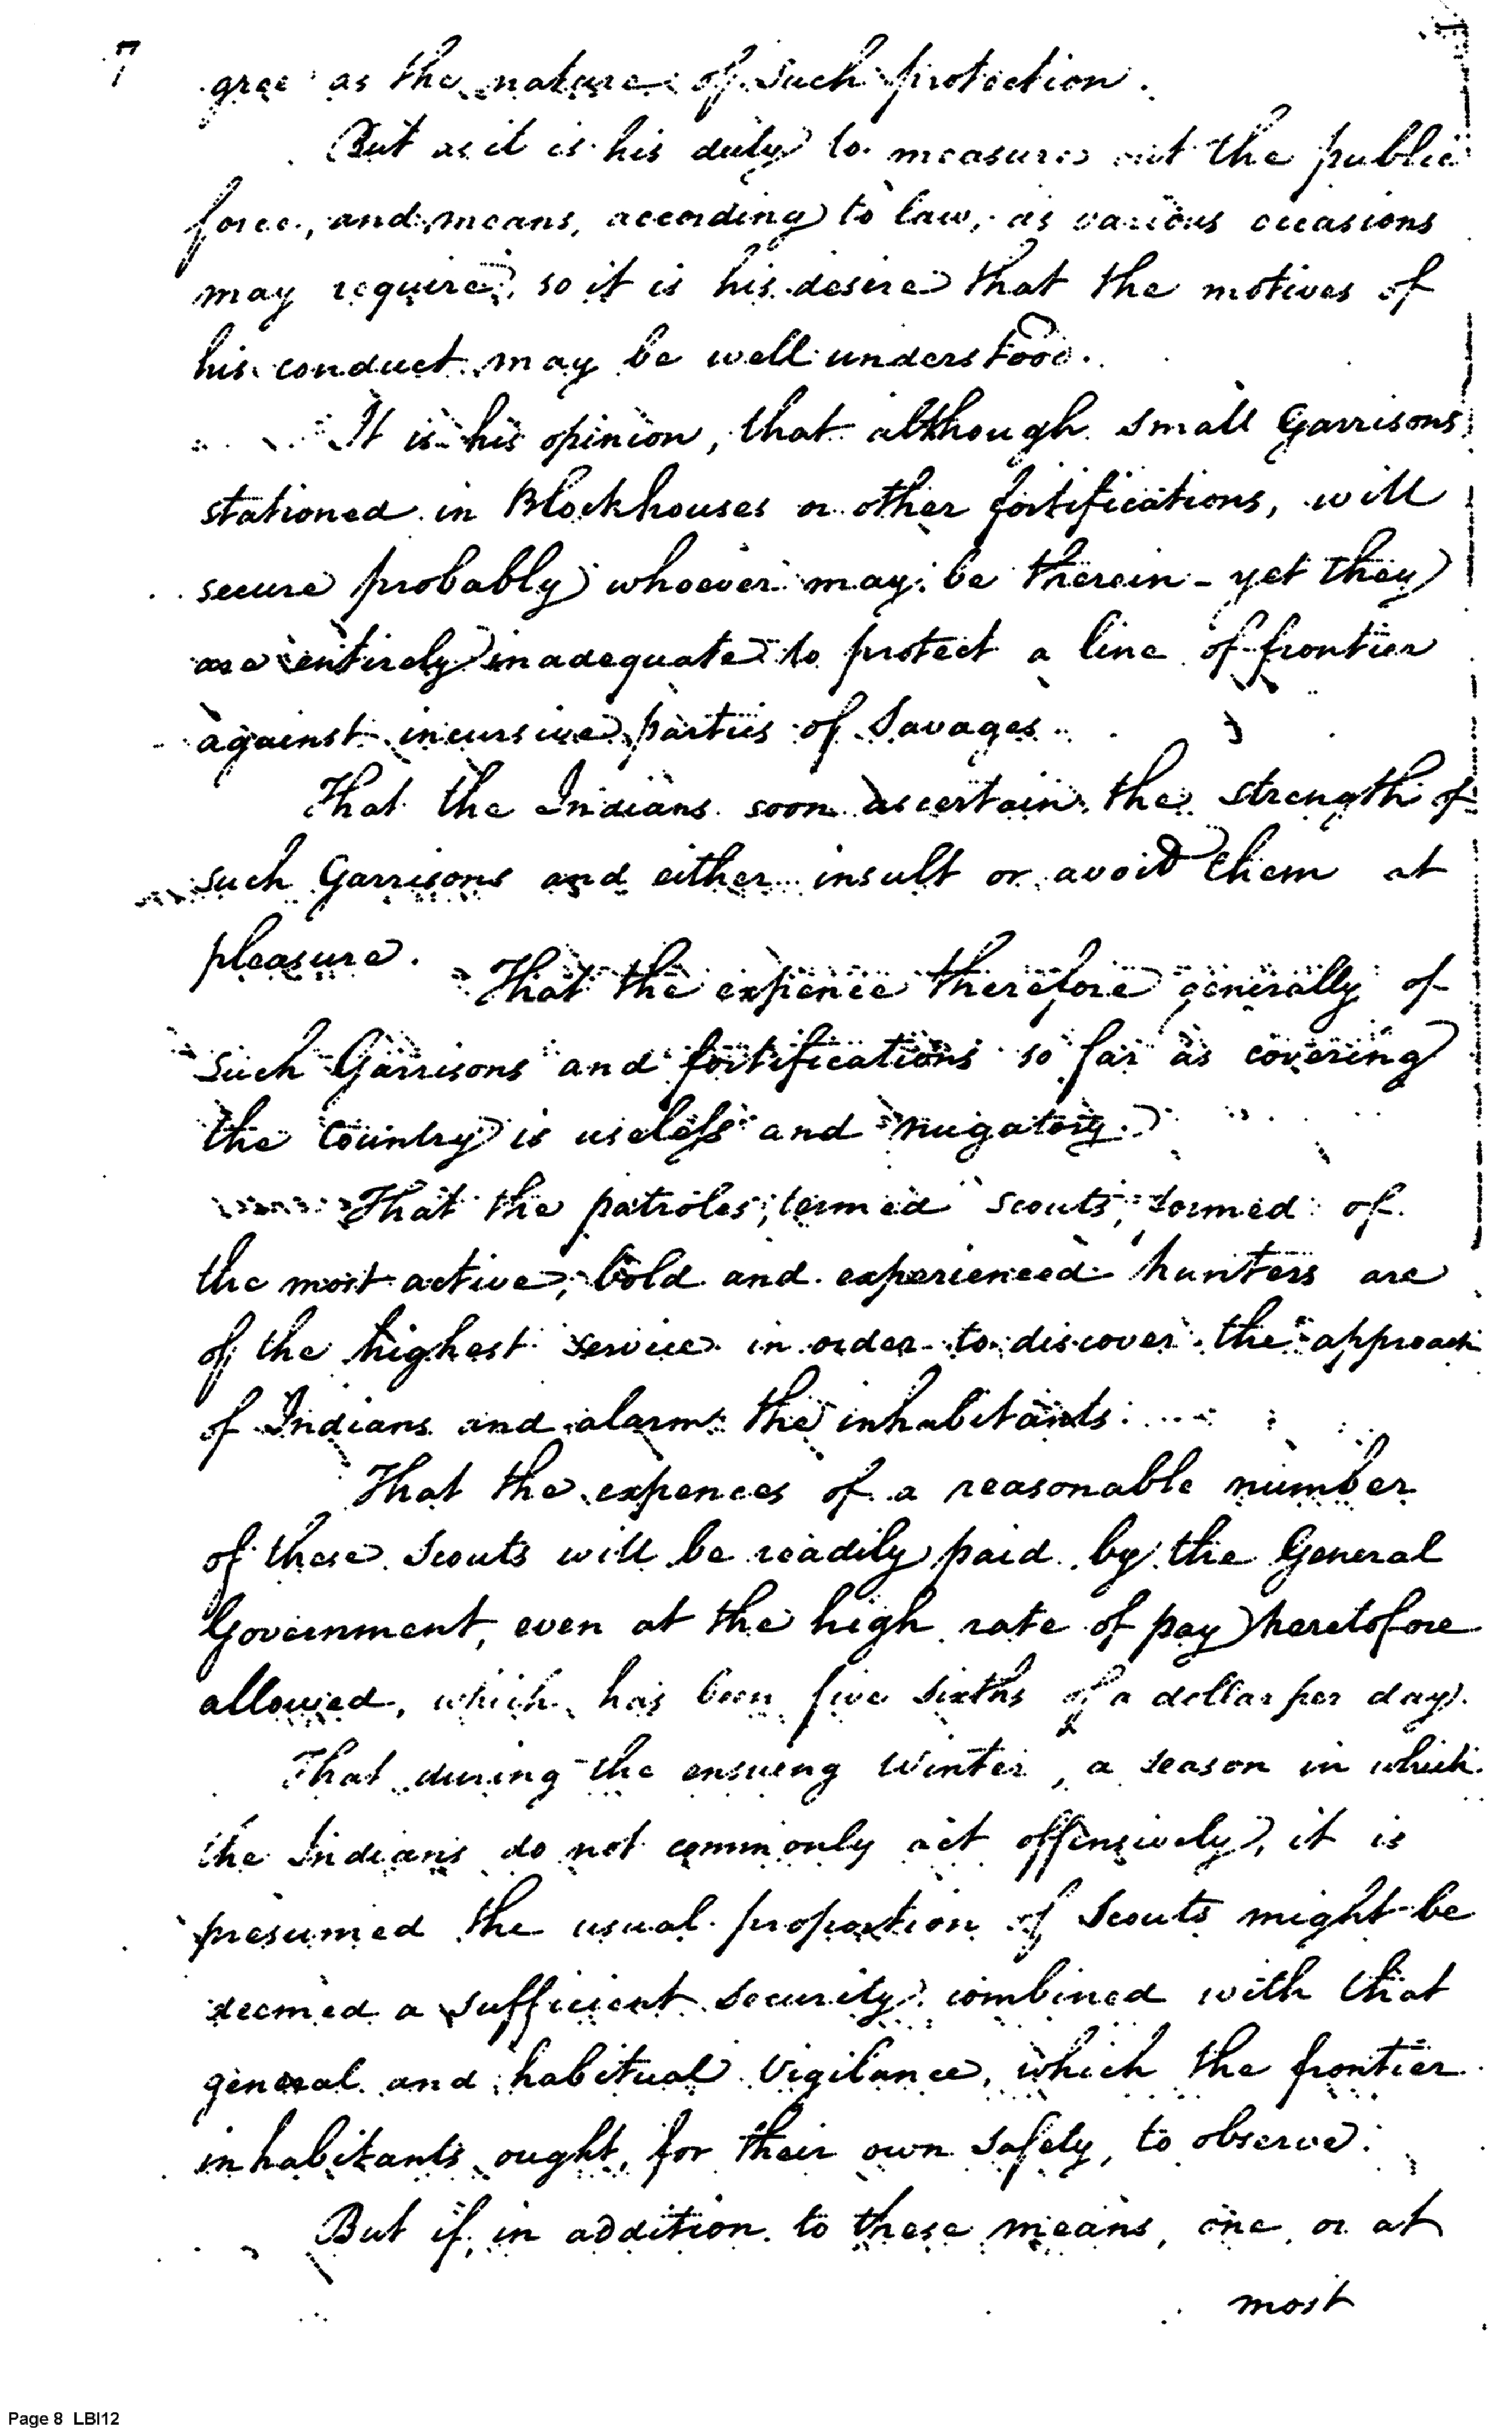 7
gree as the nature of such protection.
But as it is his duty to measure out the public
force, and means, according to law, as various occasions
may require, so it is his desire that the motives of
his conduct may be well understood.
It is his opinion, that although small Garrisons
stationed in Blockhouses or other fortifications, will
secure probably whoever may be therein - yet they
are entirely inadequate to protect a line of frontier
against incursive parties of Savages.
That the Indians soon ascertain the strength of
such Garrisons and either insult or avoid them at
pleasure.
That the expence therefore generally of
such Garrisons and fortifications so far as covering
the Country is useless and nugatory.
That the patroles, termed scouts, formed of
the most active, bold and experienced hunters are
of the highest service in order to discover the approach
of Indians and alarm the inhabitants.
That the expences of a reasonable number
of these Scouts will be readily paid by the General
Government, even at the high rate of pay heretofore
allowed, which has been five sixths of a dollar per day.
That during the ensuing Winter, a season in which
the Indians do not commonly act offensively, it is
presumed the usual proportion of Scouts might be
deemed a sufficient security combined with that
general and habitual Vigilance, which the frontier
inhabitants ought, for their own safety, to observe.
But if, in addition to these means, one, or at
most
Page 8 LBI12